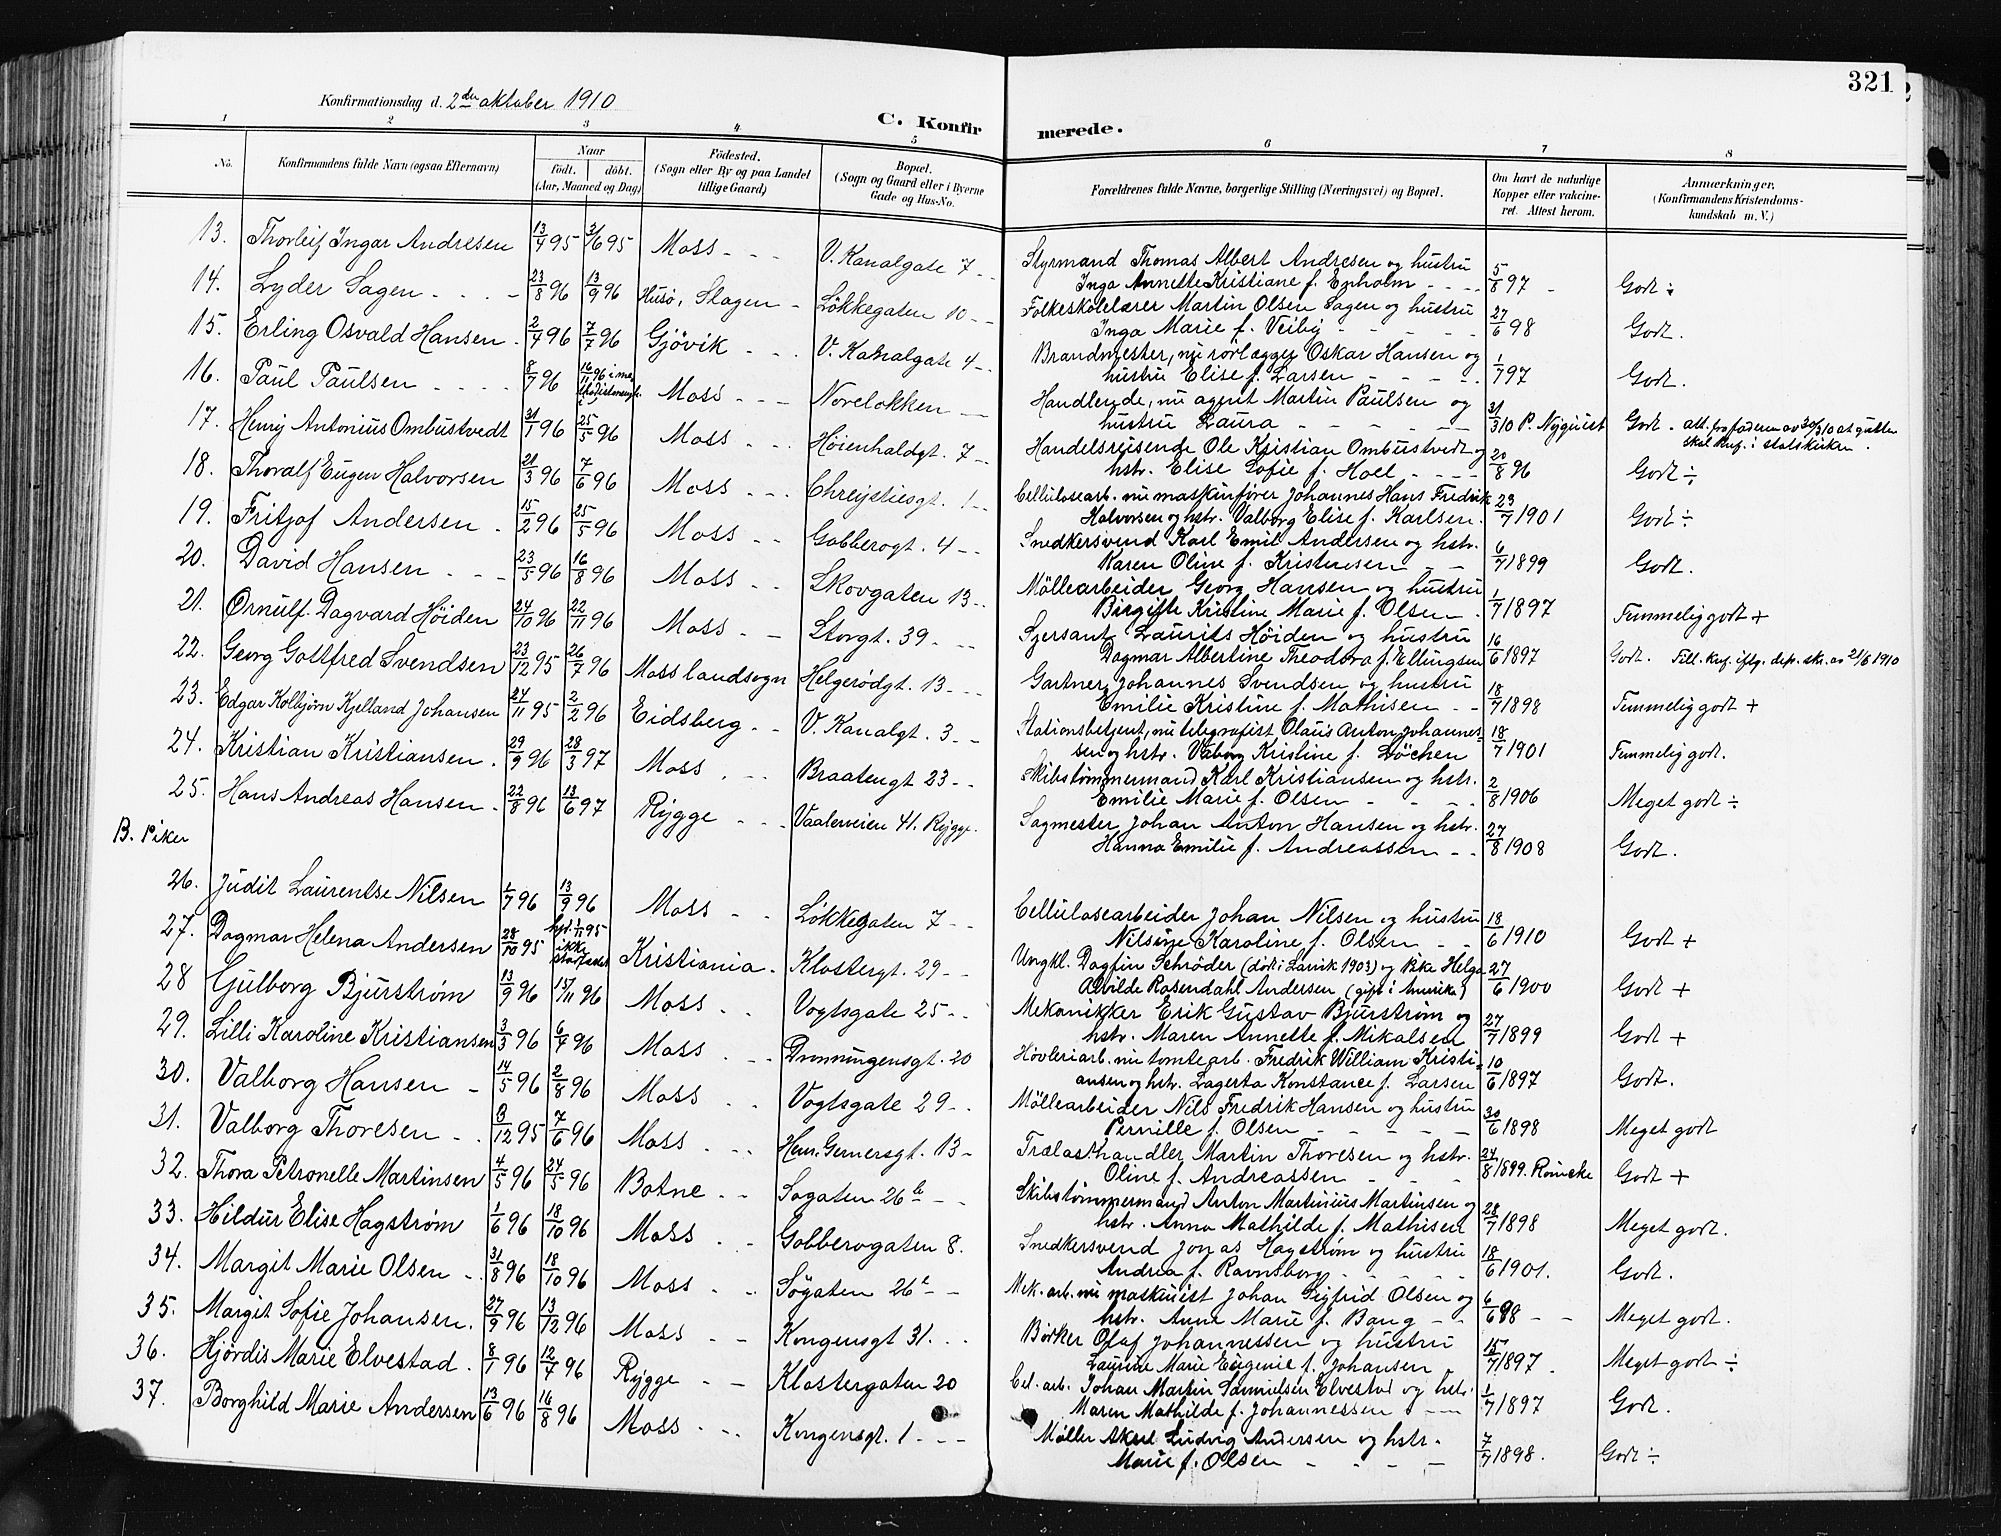 321
Konfirmationsdag d. 2den oktober 1910
C. Konfirmerede.
1 2 3 4 5 6 7 8
No. Konfirmandens fulde Navn (ogsaa Efternavn) Naar født. døbt. (Aar, Maaned og Dag) Fødested. (Sogn eller By og paa Landet tillige Gaard) Bopæl. (Sogn og Gaard eller i Byerne Gade og Hus-No. Forældrenes fulde Navne, borgerlige Stilling (Næringsvei) og Bopæl. Om havt de naturlige Kopper eller vakcineret. Attest herom. Anmærkninger. (Konfirmandens Kristendomskundskab m. V.)
13. Thorleif Ingar Andresen 13/4 95 3/6 95 Moss V. Kanalgate 7 Styrmand Thomas Albert Andresen og hustru
Inga Annette Kristiane f. Enholm 5/8 97 Godt ÷
14. Lyder Sagen 23/8 96 13/9 96 Husö, Slagen Løkkegaten 10 Folkeskolelærer Martin Olsen Sagen og hustru
Inga Marie f. Veiby 27/6 98 Godt.
15. Erling Osvald Hansen 2/4 96 7/7 96 Gjøvik V. Kanalgate 4 Brandmester, nu rørlægger Oskar Hansen og
hustru Elise f. Larsen 1/7 97 Godt.
16. Paul Paulsen 8/7 96 16/11 96 i Moss Norelokken Handlende, nu agent Martin Paulsen og
hustru Laura 31/3 10 P. Nyquist Godt. att. fra faderen av 30/3 10 at gutten
skal knf. i statskirken.
17. Henry Antonius Ombustvedt 31/1 96 25/5 96 Moss Høienhaldgt. 7 Handelsreisende Ole Kristian Ombustvedt og
hstr. Elise Sofie f. Hoel 20/8 96 Godt ÷
18. Thoralf Eugen Halvorsen 21/3 96 7/6 96 Moss Chreystiesgt. 1 Cellulosearb. nu maskinfører Johannes Hans Fredrik
Halvorsen og hstr. Valborg Elise f. Karlsen. 23/7 1901 Godt ÷
19. Fritjof Andersen 15/2 96 25/5 96 Moss Gobberogt. 4 Snedkersvend Karl Emil Andersen og hstr.
Karen Oline f. Kristensen 6/7 1899 Godt.
20. David Hansen 23/5 96 16/8 96 Moss Skovgaten 13 Møllearbeider Georg Hansen og hustru
Birgitte Kristine Marie f. Olsen 1/7 1897 Temmelig godt +
21. Ørnulf Dagvard Høiden 24/10 96 22/11 96 Moss Storgt. 39 Sjersant Laurits Høiden og hustru
Dagmar Albertine Theodora f. Ellingsen 16/6 1897 Godt. Till. knf. iflg. dep. skr. av 21/6 1910
22. Georg Gottfred Svendsen 23/12 95 26/7 96 Moss landsogn Helgerødgt. 13 Gartner Johannes Svendsen og hustru
Emilie Kristine f. Mathisen 18/7 1898 Temmelig godt +
23. Edgar Kolbjørn Kjelland Johansen 24/11 95 2/2 96 Eidsberg V. Kanalgt. 3 Stationsbetjent, nu telegrafist Olaus Anton Johannes-
sen og hstr. Valborg Kristine f. Løchen 18/7 1901 Temmelig godt.
24. Kristian Kristiansen 29/9 96 28/3 97 Moss Braatengt 23 Skibstømmermand Karl Kristiansen og hstr.
Emilie Marie f. Olsen 2/8 1906 Meget godt ÷
25. Hans Andreas Hansen 22/8 96 13/6 97 Rygge Vaalerveien 41. Rygge. Sagmester Johan Anton Hansen og hstr.
Hanna Emilie f. Andreassen 27/8 1908 Godt.
B. Piker
26. Judit Laurentse Nilsen 1/7 96 13/9 96 Moss Løkkegaten 7 Cellulosearbeider Johan Nilsen og hustru
Nilsine Karoline f. Olsen 18/6 1910 Godt +
27. Dagmar Helena Andersen 28/10 95 hjd. 1/11 95 ikke stadfæstet Kristiania Klostergt. 29 Ungkl. Dagfin Schrøder (død i Larvik 1903) og Pike Helga
Alvilde Rosendahl Andersen (gift i Amerika) 27/6 1900 Godt +
28 Gulborg Bjurstrøm 13/9 96 15/11 96 Moss Vogtsgate 25 Mekanikker Erik Gustav Bjurstrøm og
hstr. Maren Annette f. Mikalsen 27/7 1899 Godt +
29. Lilli Karoline Kristiansen 3/3 96 6/4 96 Moss Dronningensgt. 20 Høvleriarb. nu tomtearb. Fredrik William Kristi-
ansen og hstr. Lagerta Konstance f. Larsen 10/6 1897 Godt.
30. Valborg Hansen 14/5 96 2/8 96 Moss Vogtsgate 29 Møllearbeider Nils Fredrik Hansen og hustru
Pernille f. Olsen 30/6 1898 Meget godt
31. Valborg Thoresen /12 95 7/6 96 Moss Hen. Gernersgt. 13 Trælasthandler Martin Thoresen og hstr.
Oline f. Andreassen 24/8 1899. Reincke Godt +
32. Thora Petronelle Martinsen 4/5 96 24/5 96 Botne Søgaten 26b Skibstømmermand Anton Martinius Martinsen og
hstr. Anna Mathilde f. Mathisen 28/7 1898 Meget godt.
33. Hildur Elise Hagstrøm 1/6 96 18/10 96 Moss Gobberogaten 8. Snedkersvend Jonas Hagstrøm og hustru
Andrea f. Ravnsborg 18/6 1901. Godt.
34. Margit Marie Olsen 31/8 96 18/10 96 Moss Søgaten 26 Mek. arb. nu maskinist Johan Sigfrid Olsen og
hstr. Anna Marie f. Bang 6/6 98 Meget godt.
35. Margit Sofie Johansen. 27/9 96 13/12 96 Moss Kongensgt 31. Børker Olaf Johannessen og hustru
Laurine Marie Eugenie f. Johansen 15/7 1897 Meget godt ÷
36. Hjørdis Marie Elvestad 8/1 96 12/4 96 Rygge Klostergaten 20 Cel. arb. Johan Martin Samuelsen Elvestad og hstr.
Maren Mathilde f. Johannessen 1/7 1897 Godt.
37. Borghild Marie Andersen 13/6 96 16/8 96 Moss Kongensgt. 1 Møller Aksel Ludvig Andersen og hstr.
Marie f. Olsen 7/7 1898. Godt ÷